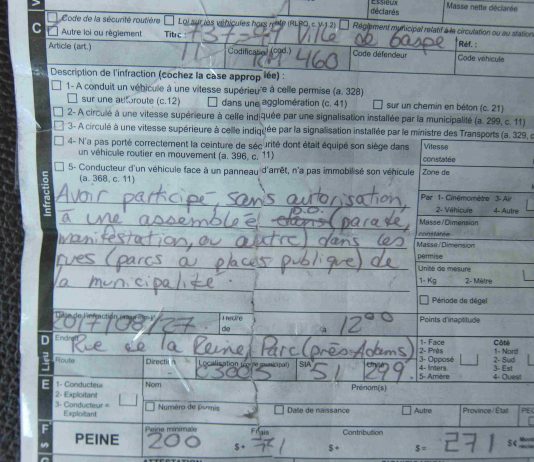 Essieux
déclarés
Masse nette déclarée
C
Code de la sécurité routière
Loi sur les véhicules hors route (RLRQ, c. V-1.2)
Règlement municipal relatif à la circulation ou au station
Autre loi ou règlement
Titre :
737-97 Ville de Gaspé
Réf. :
Article (art.)
11
Codification (cod.)
RM 460
Code défendeur
Code véhicule
Description de l'infraction (cochez la case approp iée) :
1- A conduit un véhicule à une vitesse supérieu e à celle permise (a. 328)
sur une autoroute (c.12)
dans une agglomération (c. 41)
sur un chemin en béton (c. 21)
2- A circulé à une vitesse supérieure à celle indiquée par une signalisation installée par la municipalité (a. 299, c. 11)
3- A circulé à une vitesse supérieure à celle indiquée par la signalisation installée par le ministre des Transports (a. 329, c
4- N'a pas porté correctement la ceinture de séc rité dont était équipé son siège dans
un véhicule routier en mouvement (a. 396, c. 11)
Vitesse
constatée
5- Conducteur d'un véhicule face à un panneau d'arrêt, n'a pas immobilisé son véhicule
(a. 368, c. 11)
Zone de
Infraction
Avoir participé sans autorisation,
à une assemblée dans (parade,
manifestation, ou autre) dans les
rues (parcs a places publique) de
la municipalité.
Par 1- Cinémomètre 3- Air
2- Véhicule 4- Autre
Masse/Dimension
constatée
Masse/Dimension
permise
Unité de mesure
1- Kg 2- Mètre
Période de dégel
Date de l'infraction
2017/08/27
Heure
de
à
12 00
Points d'inaptitude
D
Lieu
Endroit
Rue de la Reine, Parc (près Adams)
1- Face
2- Près
3- Opposé
4- Inters.
5- Arrière
Côté
1- Nord
2- Sud
3- Est
4- Ouest
Route
Directi n
Localisation (code municipal)
03005
SIA
51
299
E
1- Conducteur
2- Exploitant
3- Conducteur =
Exploitant
Nom
Prénom(s)
Numéro de permis
Date de naissance
Autre
Province/État
F
PEINE
Peine minimale
200
$+
Frais
71
$+
Contribution
$=
271
$